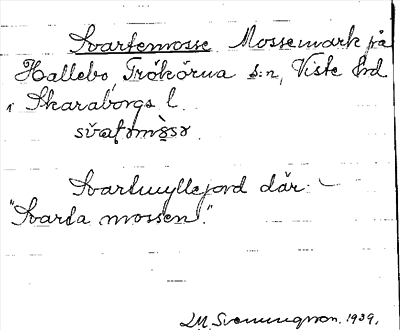 Svartemosse Mossemark på
Hallebo, Trökörna s:n, Viste hrd
i Skaraborgs l.
svat mosə.
Svartmyllejord där. –
"Svarta mossen."
I.M. Svenungsson. 1939.